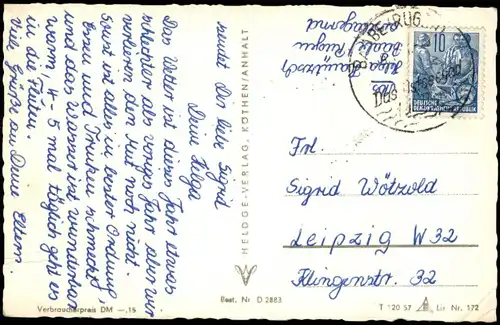 Das Wetter ist dieses Jahr etwas
schlechter als voriges Jahr aber wir
verlieren den Mut noch nicht.
Sonst ist alles in bester Ordnung,
Essen und Trinken schmeckt
und das Wasser ist wunderbar
warm, 4-5 mal täglich geht es
in die Fluten.
Viele Grüße an Deine Eltern.
sendet Dir liebe Sigrid
Deine Helga
HELDGE-VERLAG, KÖTHEN/ANHALT
Verbraucherpreis DM -,15
Best. Nr. D 2883
Helga
Binz/Rügen
10
DEUTSCHE
DEMOKRATISCHE REPUBLIK
Das Ostseebad
Frl.
Sigrid Wötzold
Leipzig W 32
Klingenstr. 32
T 120 57
Liz. Nr. 172